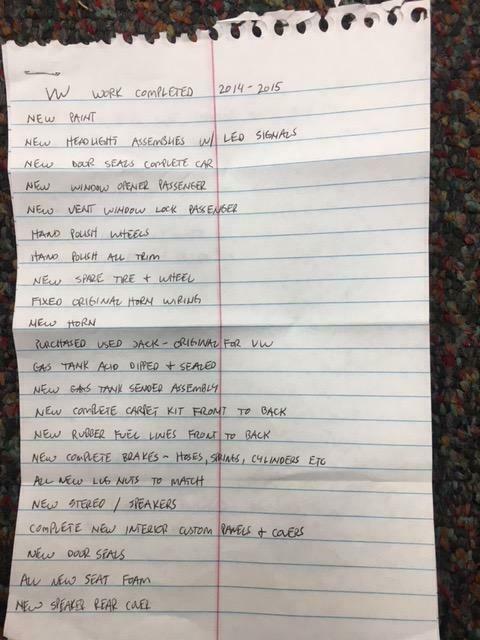 VW WORK COMPLETED 2014-2015
NEW PAINT
NEW HEADLIGHT ASSEMBLIES W/ LED SIGNALS
NEW DOOR SEALS COMPLETE CAR
NEW WINDOW OPENER PASSENGER
NEW VENT WINDOW LOCK PASSENGER
HAND POLISH WHEELS
HAND POLISH ALL TRIM
NEW SPARE TIRE + WHEEL
FIXED ORIGINAL HORN WIRING
NEW HORN
PURCHASED USED JACK - ORIGINAL FOR VW
GAS TANK ACID DIPPED + SEALED
NEW GAS TANK SENDER ASSEMBLY
NEW COMPLETE CARPET KIT FRONT TO BACK
NEW RUBBER FUEL LINES FRONT TO BACK
NEW COMPLETE BRAKES - HOSES, SPRINGS, CYLINDERS ETC
ALL NEW LUG NUTS TO MATCH
NEW STEREO / SPEAKERS
COMPLETE NEW INTERIOR CUSTOM PANELS + COVERS
NEW DOOR SEALS
ALL NEW SEAT FOAM
NEW SPEAKER REAR COVER